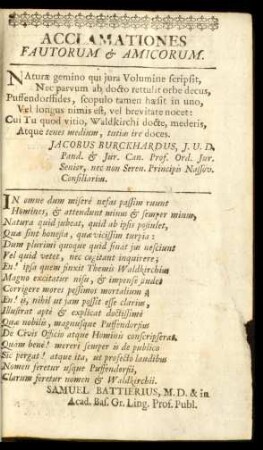 ACCLAMATIONES
FAUTORUM & AMICORUM.
Naturæ gemino qui jura Volumine scripsit,
Nec parvum ab docto rettulit orbe decus,
Puffendorffides, scopulo tamen hæsit in uno,
Vel longus nimis est, vel brevitate nocet:
Cui Tu quod vitio, Waldkirchi docte, mederis,
Atque tenes medium, tutiu ire doces.
JACOBUS BURCKHARDUS, J. U. D.
Pand. & Jur. Can. Prof. Ord. Jur.
Senior, nec non Seren. Principis Nassov.
Consiliarius.
IN omne dum miseri nefas passim ruunt
Homines, & attendunt minus & semper minus,
Natura quid jubeat, quid ab ipsis postulet,
Quæ sint honesta, quæ vicissim turpia:
Dum plurimi quoque quid sinat jus nesciunt
Vel quid vetet, nec cogitant inquirere;
En! ipsa quem finxit Themis Waldkirchius
Magno excitatur nisu, & impense studet
Corrigere mores possimos mortalium;
En! is, nihil ut jam possit esse clarius,
Illustrat apte & explicat doctissime
Quæ nobilis, magnusque Puffendorfius
De Civis Officio atque Hominis conscripserat.
Quim bene! mereri semper is de publico
Sic pergat! atque ita, ut profecto laudibus
Nomen feretur usque Puffendorfii,
Clarum feretur nomen & Waldkirchii.
SAMUEL BATTIERIUS, M.D. & in
Acad. Bas. Gr. Ling. Prof. Publ.